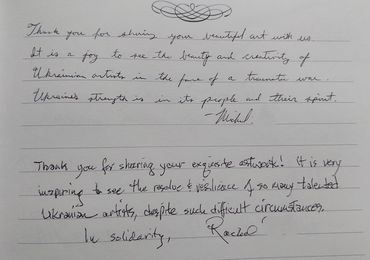 Thank you for sharing your beautiful art with us.
It is a joy to see the beauty and creativity of
Ukrainian artists in the face of a traumatic war.
Ukraine's strength is in its people and their spirit.
- Michel
Thank you for sharing your exquisite artwork! It is very
inspiring to see the resolve & resilience of so many talented
Ukranian artists, despite such difficult circumstances.
In solidarity, Rachel